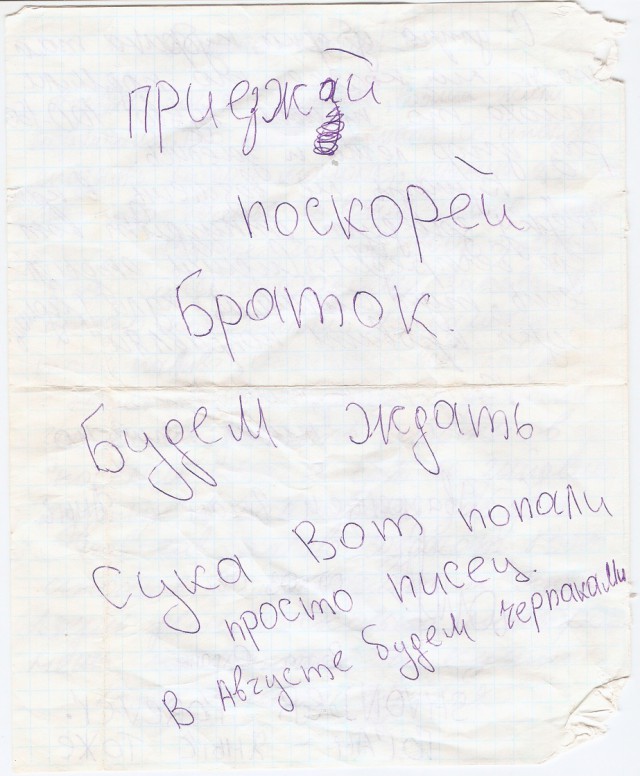 приеджай
поскорей
браток.
Будем ждать
Сука Вот попали
просто писец.
В Августе будем черпаками